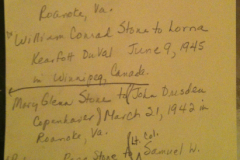 Roanoke, Va.
William Conrad Stone to Lorna
Kearfott DuVal June 9, 1945
in Winnipeg, Canada.
Mary Glenn Stone to (John Dresden
Copenhaver) March 21, 1942 in
Roanoke, Va.
Stone to (Lt. Col.
Samuel W.